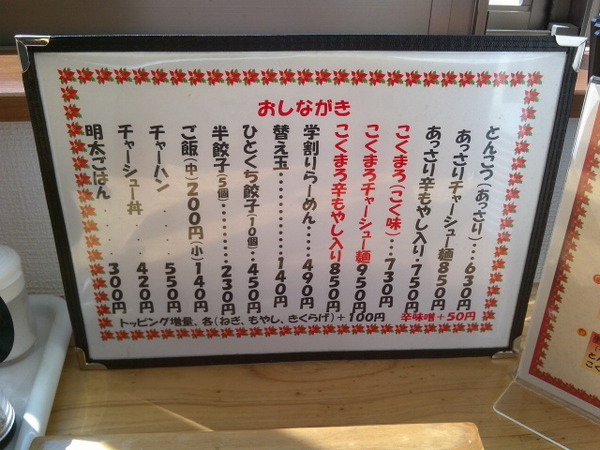 おしながき
とんこつ(あっさり)‥‥630円
あっさりチャーシュー麺850円
あっさり辛もやし入り‥750円
こくまろ(こく味)‥‥730円
こくまろチャーシュー麺950円
こくまろ辛もやし入り850円
学割りらーめん‥‥490円
替え玉‥‥‥‥‥‥140円
ひとくち餃子(10個)‥450円
半餃子(5個)‥‥‥‥230円
ご飯(中)200円(小)140円
チャーハン‥‥‥550円
チャーシュー丼‥‥420円
明太ごはん‥‥‥300円
トッピング増量、各(ねぎ、もやし、きくらげ)+100円 辛味噌+50円